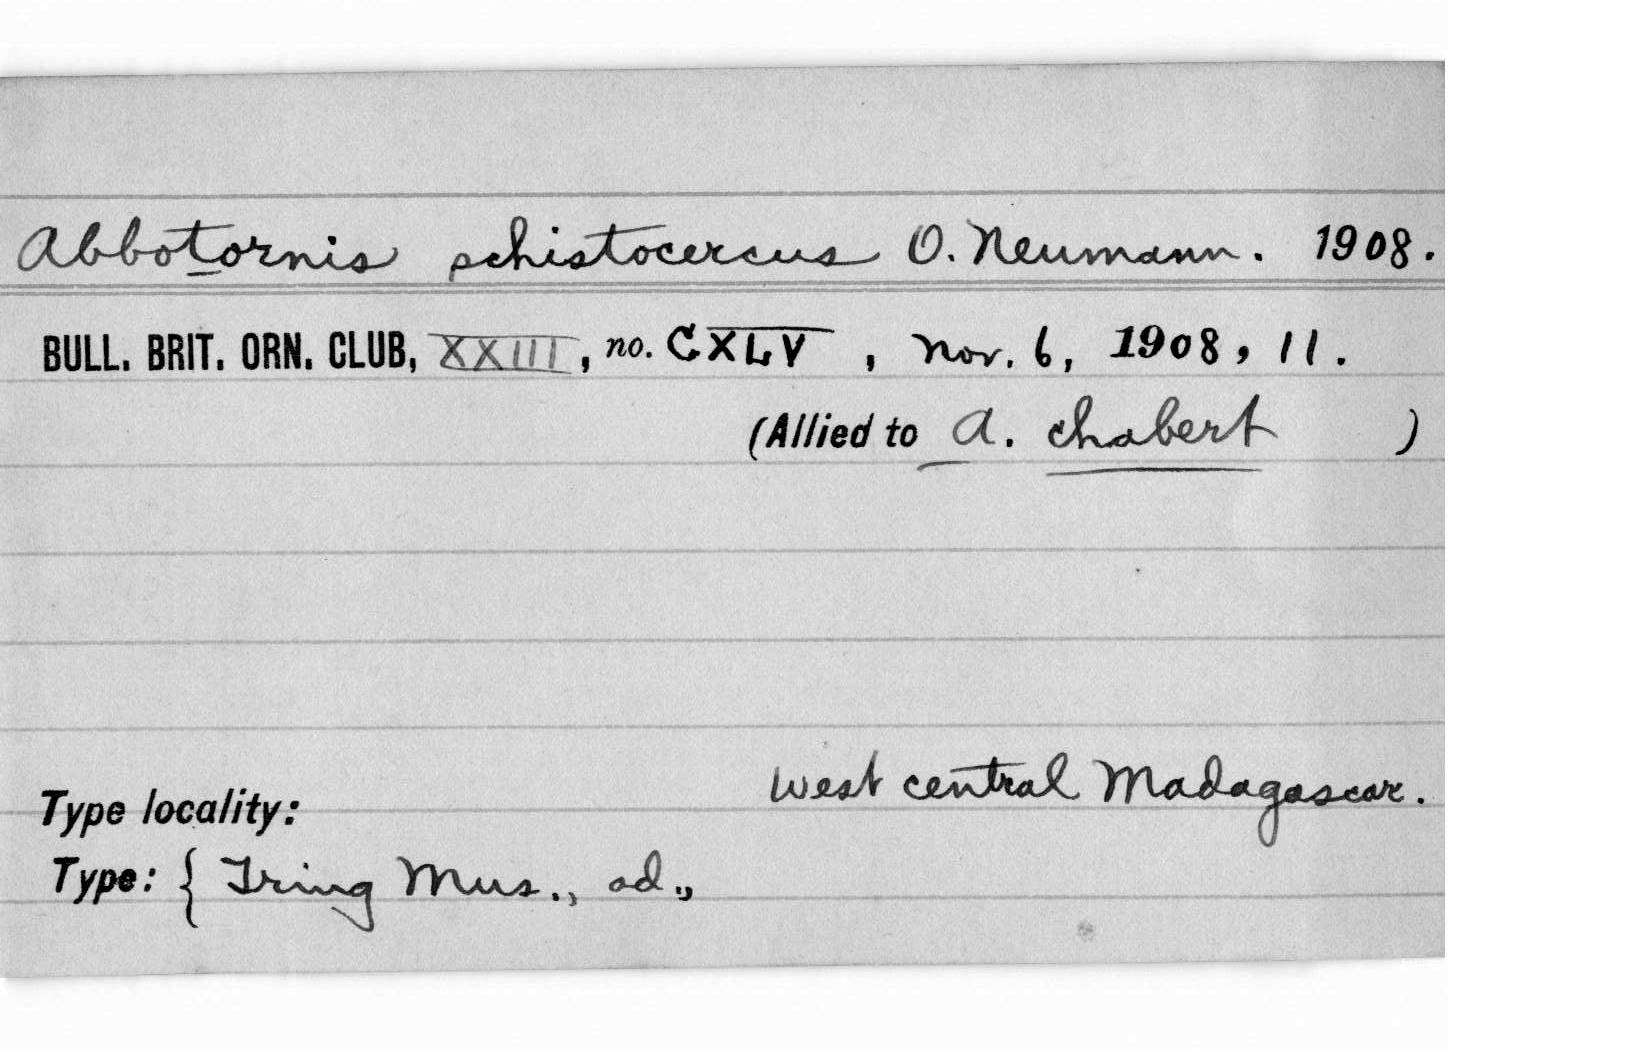 Abbotornis schistocercus O. Neumann. 1908.
BULL. BRIT. ORN. CLUB, XXIII, no. CXLV, Nov. 6, 1908, 11.
(Allied to A. chabert )
West central Madagascar.
Type locality:
Type: { Tring Mus., ad.,